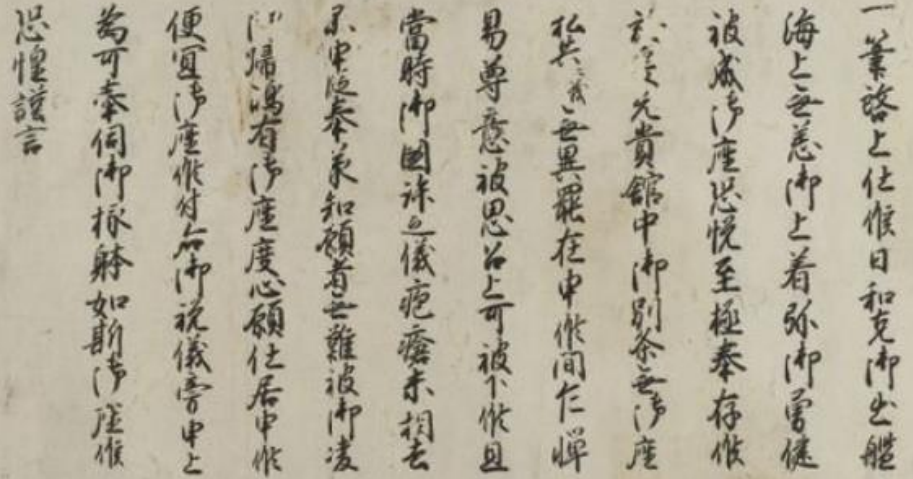 一筆啓上仕候日和克御出艦
海上無恙御上着弥御勇健
被成御座恐悦至極奉存候
元貴館中御別条無御座
私共儀無異罷在申候間乍憚
易尊意被思召上可被下候且
當時御国許之儀疱瘡未相去
不申段奉承知願者無難被御凌
御帰鴻有御座度心願仕居申候
便宜御座候付右御祝儀旁申上
為可奉伺御様躰如斯御座候
恐惶謹言